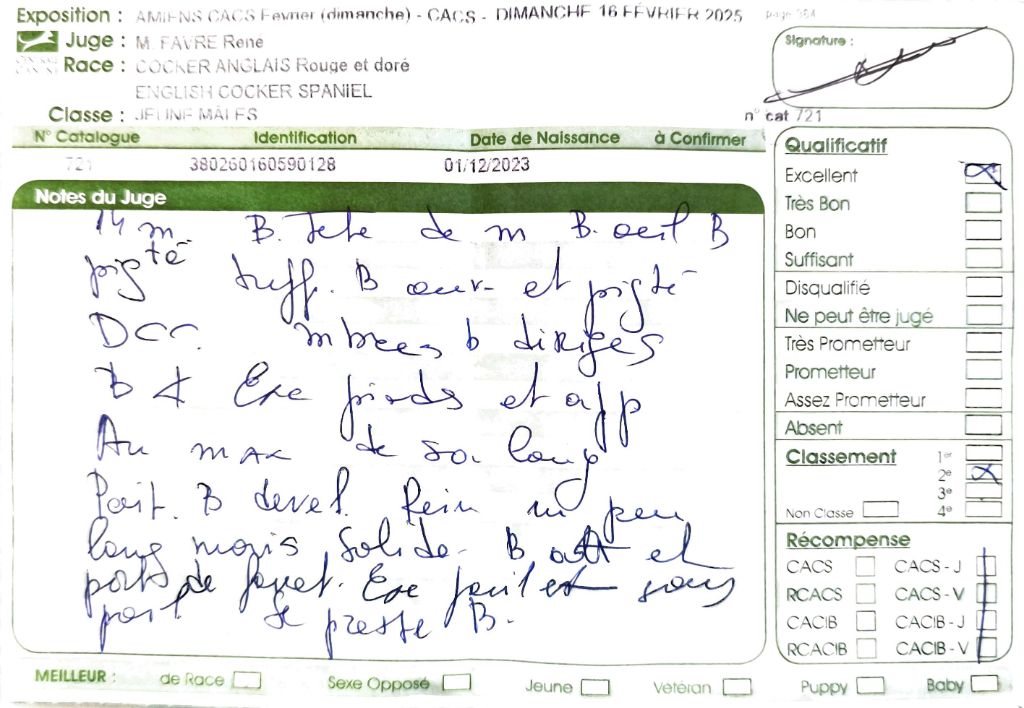 Exposition : AMIENS CACS Fevrier (dimanche) - CACS - DIMANCHE 16 FÉVRIER 2025
Juge : M. FAVRE Rene
Race : COCKER ANGLAIS Rouge et doré
ENGLISH COCKER SPANIEL
Classe : JEUNE MÂLES
Signature :
n° cat 721
N° Catalogue Identification Date de Naissance à Confirmer
721 380260160590128 01/12/2023
Notes du Juge
14 m. B. Tete de m B. oeil B
pigté truff. B ouv- et pigté
DCC. mbres b dirigés
B & Exc pieds et app
Au max de sa long
Poit. B devel. Rein un peu
long mais solide. B att et
port de fouet. Exc poil et sous
poil Se presste B.
Qualificatif
Excellent
Très Bon
Bon
Suffisant
Disqualifié
Ne peut être jugé
Très Prometteur
Prometteur
Assez Prometteur
Absent
Classement 1er
2e
3e
Non Classe 4e
Récompense
CACS CACS - J
RCACS CACS - V
CACIB CACIB - J
RCACIB CACIB - V
MEILLEUR : de Race Sexe Opposé Jeune Vétéran Puppy Baby